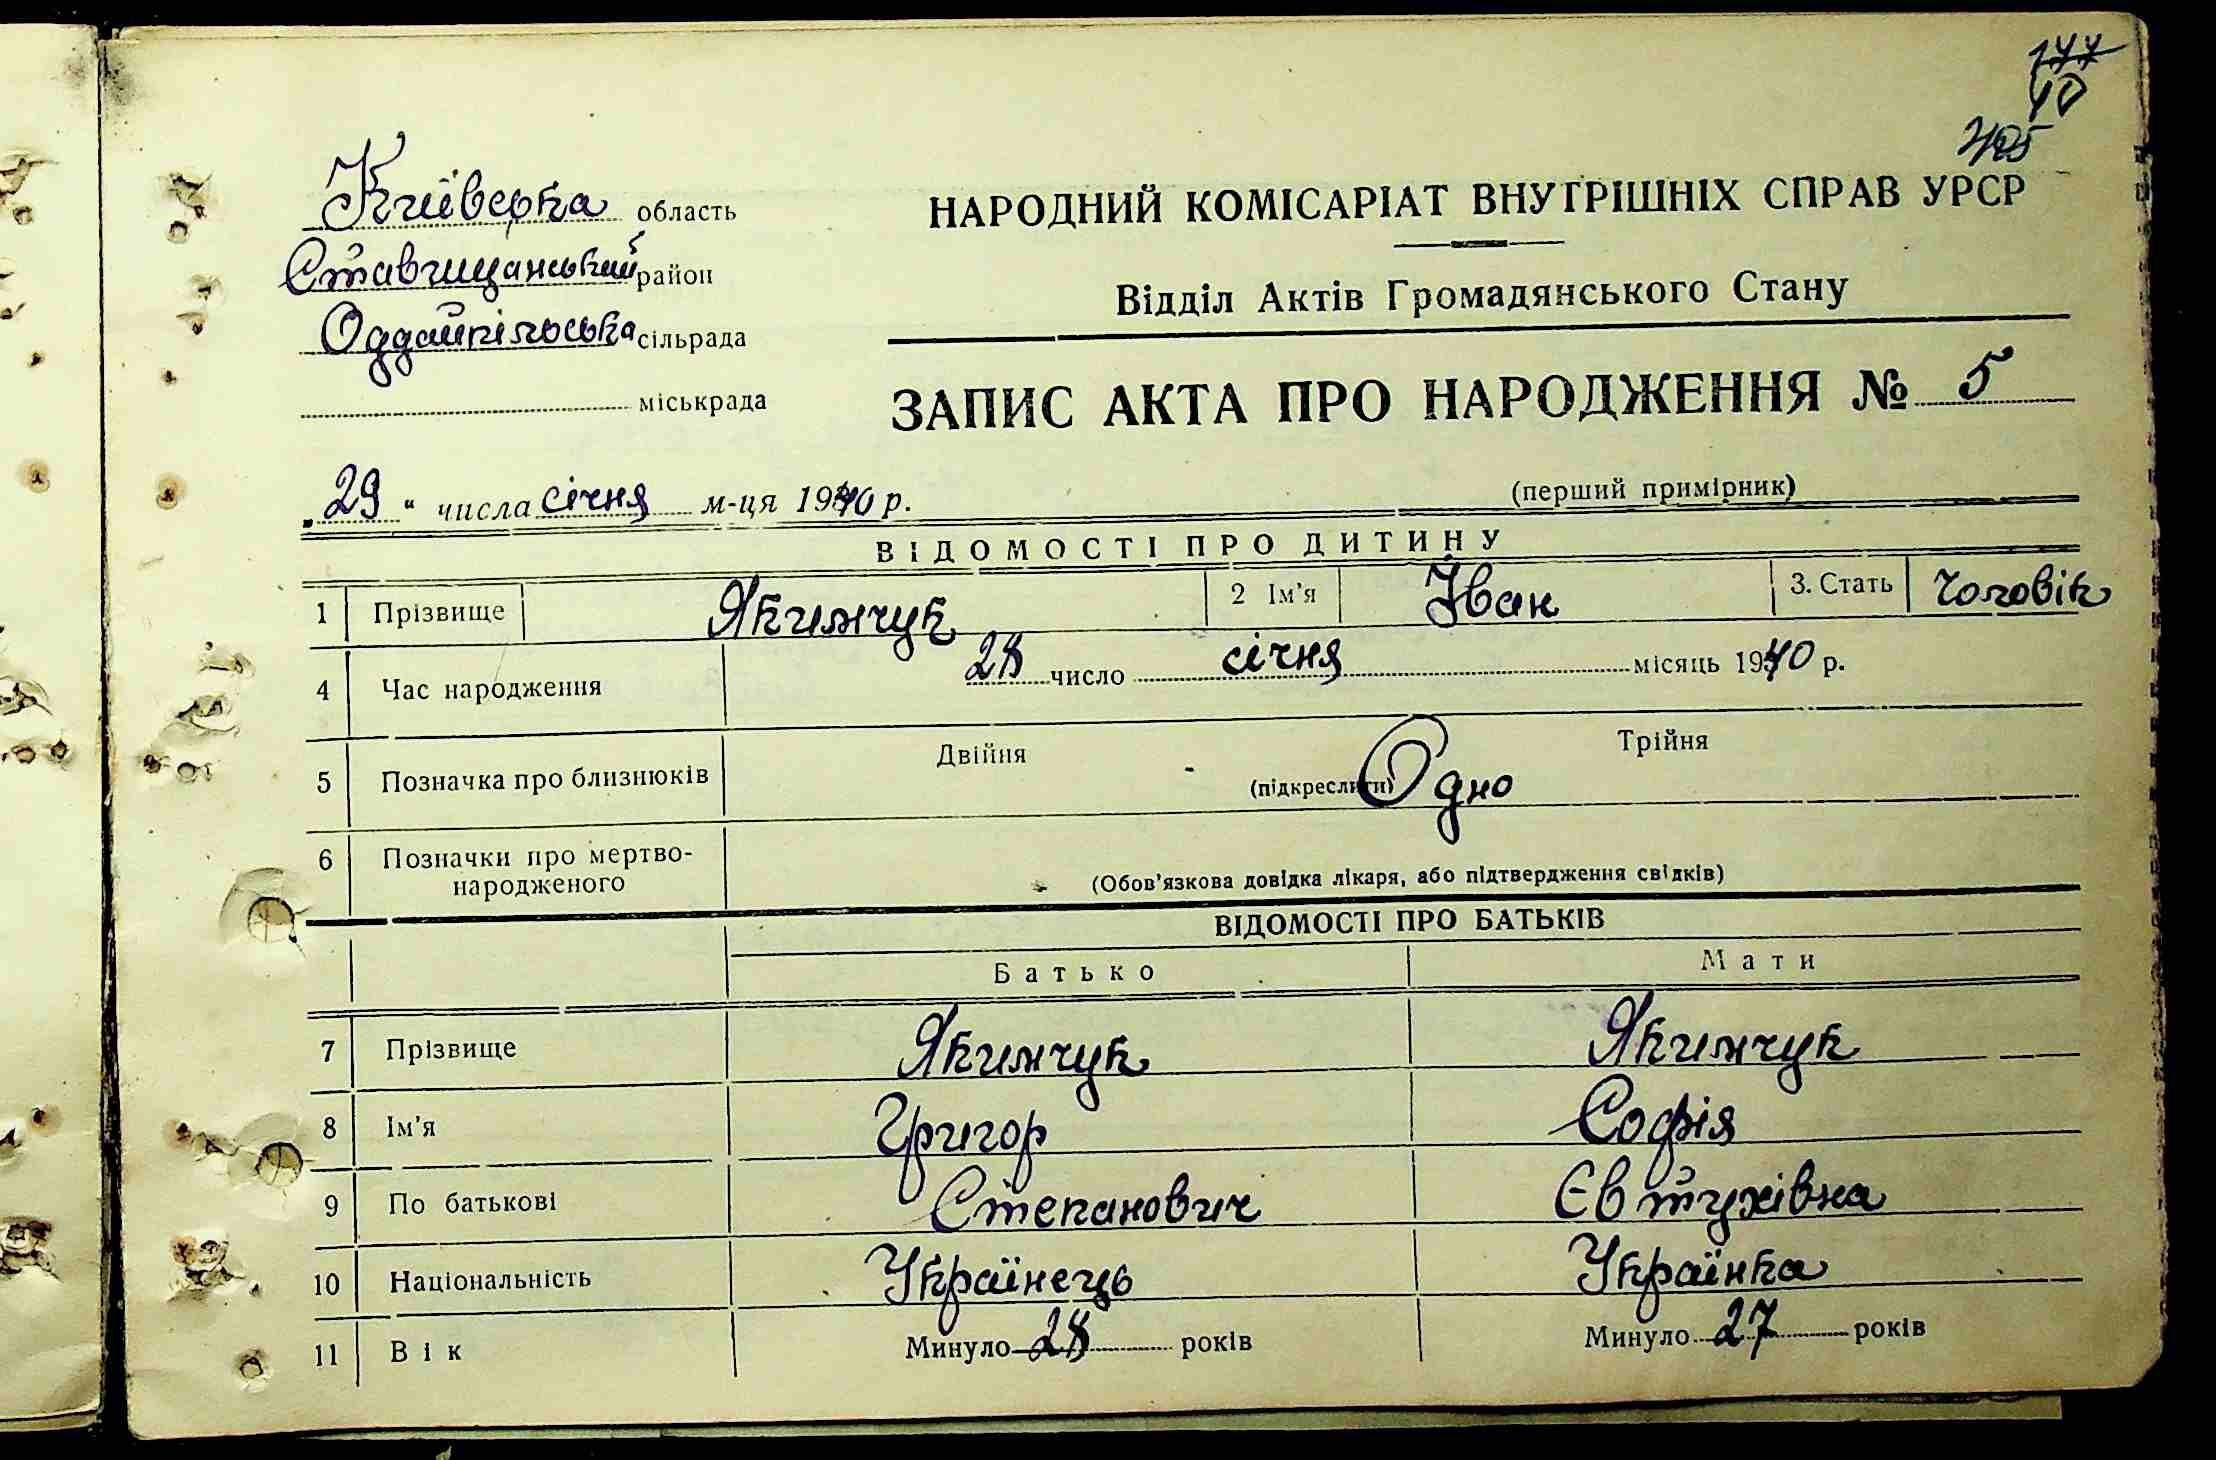 10
Київська область
Ставищанський район
Оддайпільська сільрада
міськрада
НАРОДНИЙ КОМІСАРІАТ ВНУТРІШНІХ СПРАВ УРСР
Відділ Актів Громадянського Стану
ЗАПИС АКТА ПРО НАРОДЖЕННЯ № 5
„29“ числа січня м-ця 1940 р.
(перший примірник)
ВІДОМОСТІ ПРО ДИТИНУ
1 Прізвище Якимчук 2 Ім'я Іван 3. Стать чоловік
4 Час народження 28 число січня місяць 1940 р.
5 Позначка про близнюків Двійня (підкреслити) Одно Трійня
6 Позначки про мертво-
народженого (Обов'язкова довідка лікаря, або підтвердження свідків)
ВІДОМОСТІ ПРО БАТЬКІВ
Батько Мати
7 Прізвище Якимчук Якимчук
8 Ім'я Григор Софія
9 По батькові Степанович Євтухівна
10 Національність Українець Українка
11 Вік Минуло 28 років Минуло 27 років